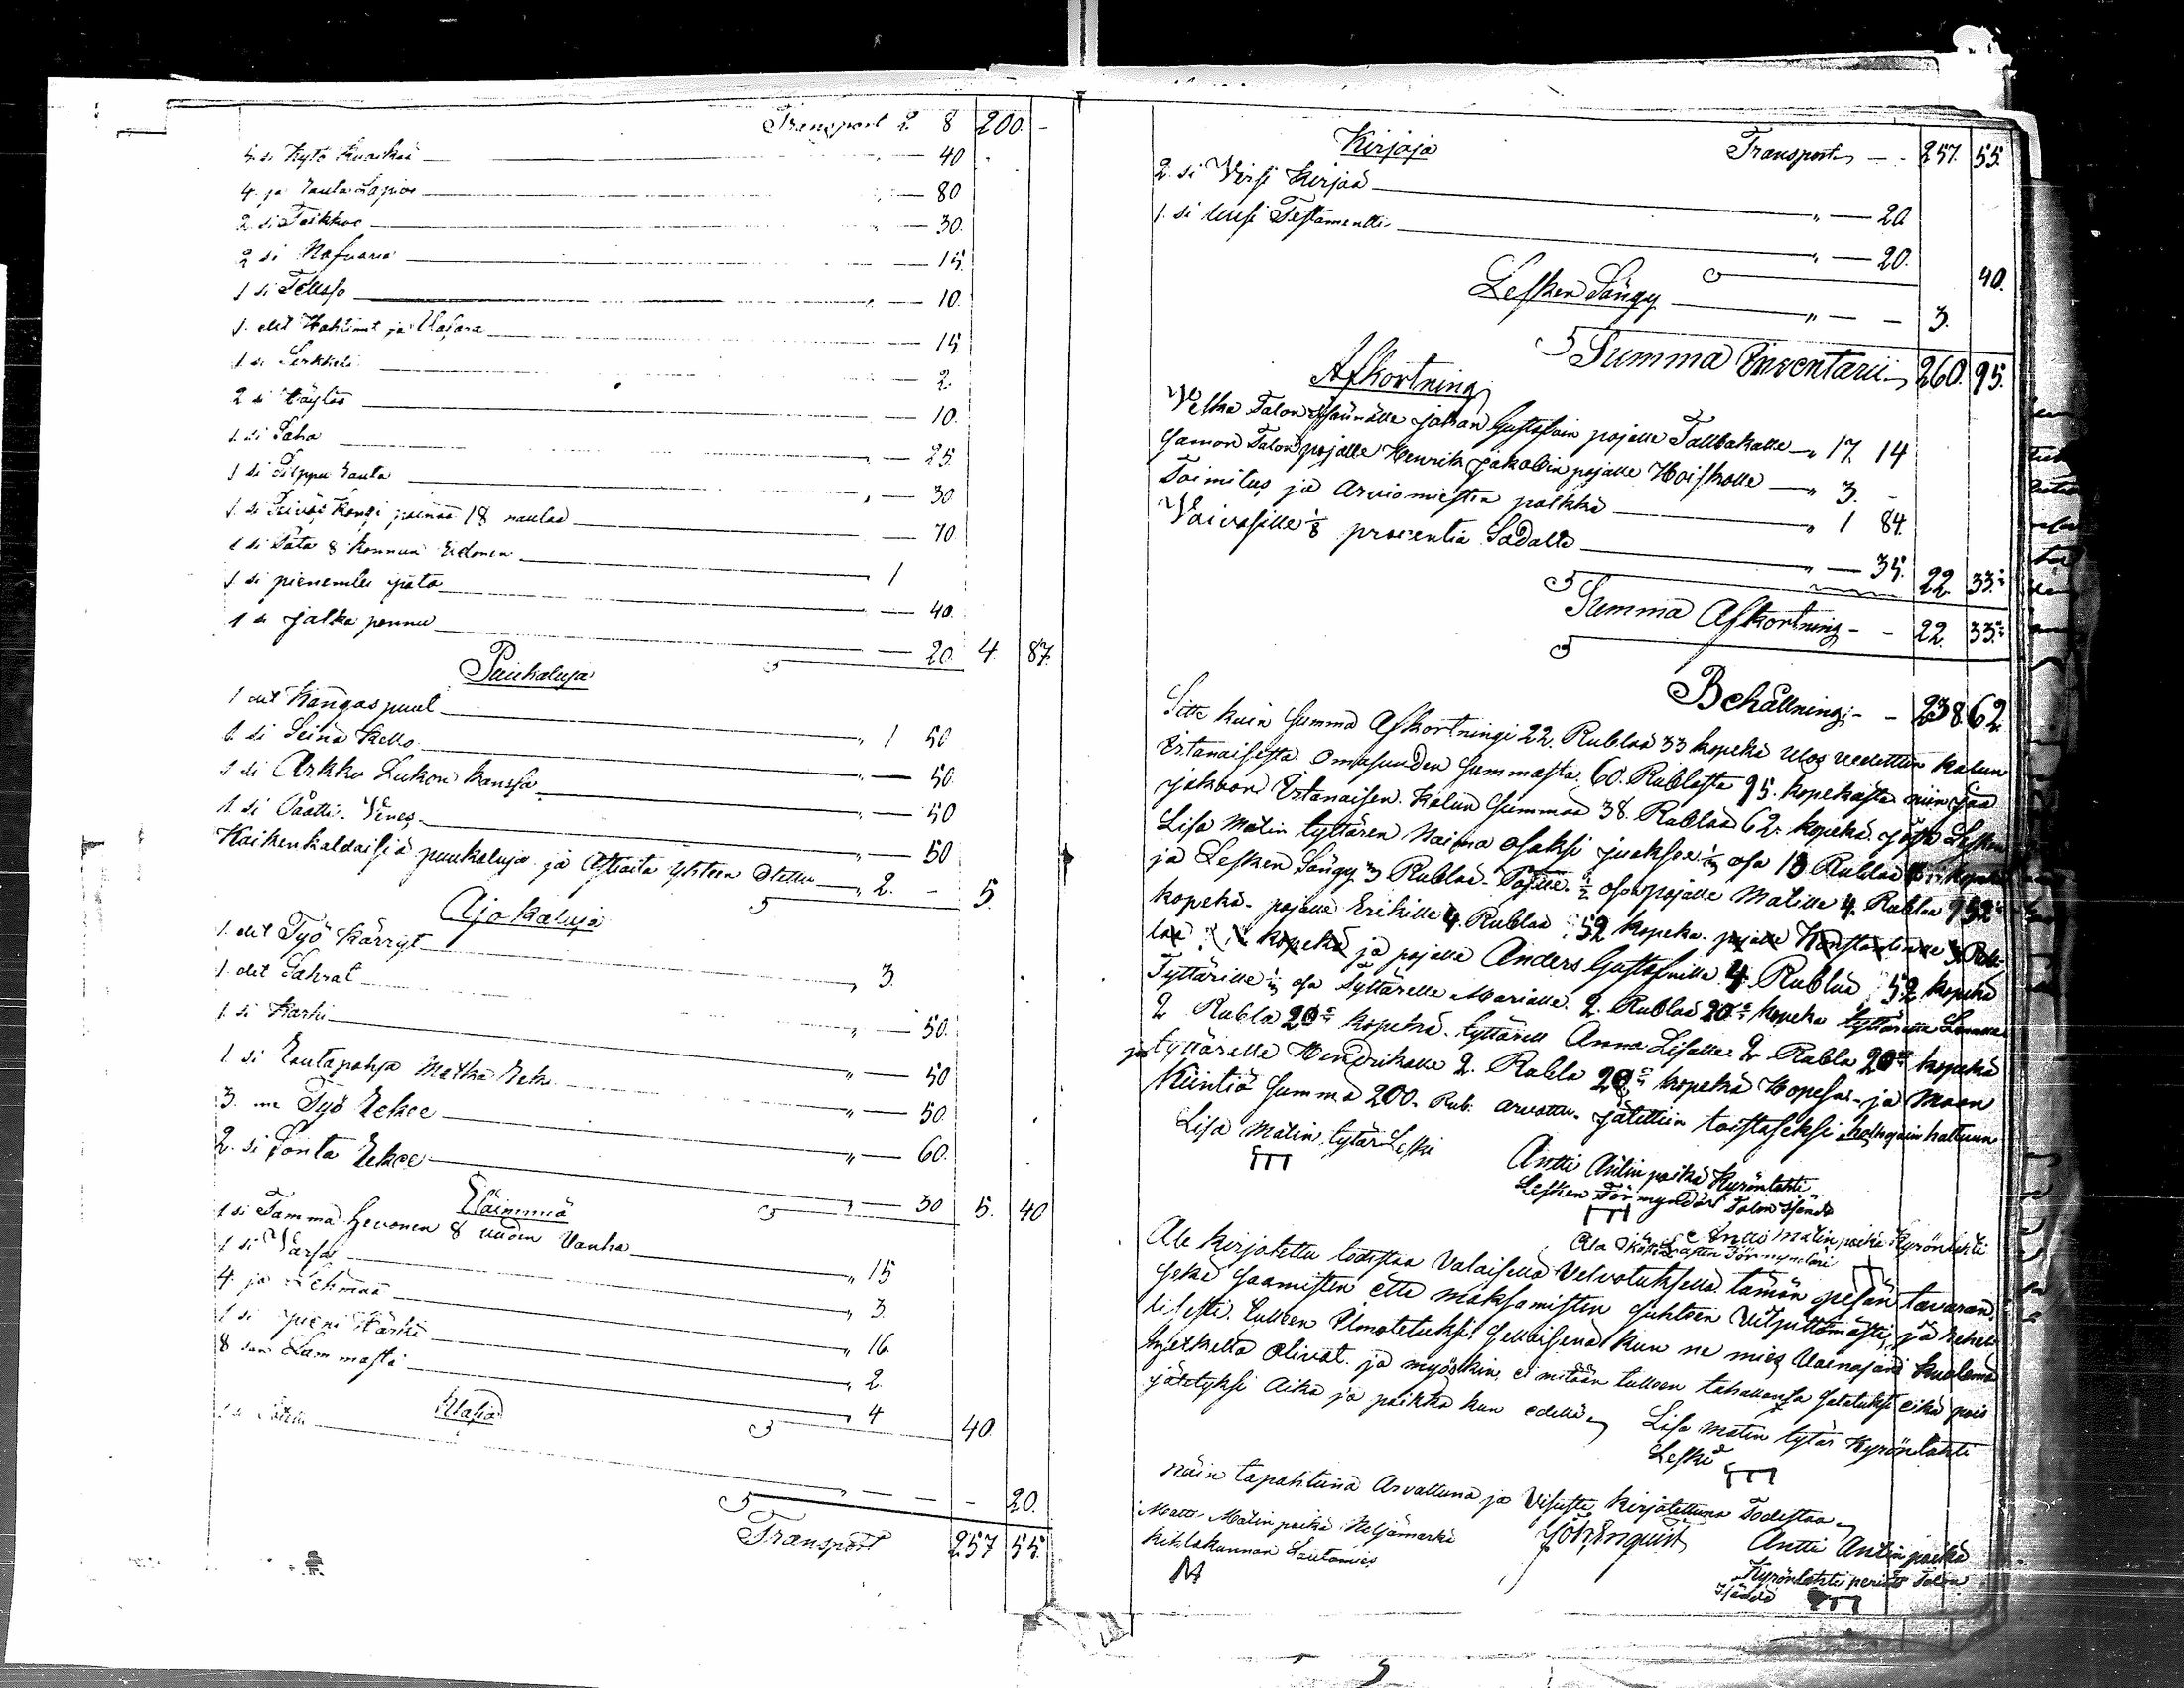 Transport 2 8 200. -
3. si Kytö Kuokkaa — " — 40
4. ja Rauta Lapioo — " — 80
2 si Taikkoo — " — 30.
2 si Nafvaria — — 15
1 si Telsso — " — 10.
1. det Hahlimet ja Vasara — 15
1 si Sirkkeli — 2.
2 si Häylää — 10.
1. si Saha — " — 25.
1 si Filppu Rauta — " — 30
1. si Teiväs Kangi painaa 18 naulaa — 70
1 si Pata 8 konnun Vedonen — 1
1 si pienembi pata — 40.
1 si jalka pannu — 20. 4. 87.
Puukaluja
1 det Kangaspuut — " 1 50
1. si Seinä Kello — " — 50.
1 si Arkku Lukon kanssa — " — 50
1. si Låtti-Venes — " — 50
Kaikenkaldaisia puukaluja ja Astioita yhteen otettu — " 2. - 5.
Ajo Kaluja
1. det Työ Kärryt — " 3.
1. det Lahrat — " — 50.
1. si Karhi — " — 50
1 si Rautapohja Matka Reki — " — 50.
3. me Työ Rekee — " — 60.
2. si Sonta Rekee — " — 30 5. 40
Eläimmiä
1 si Tamma Hevonen 8 vuoden Vanha — " 15
1 si Varsa — " 3.
4. ja Lehmää — " 16.
1 si pieni Härkä — " 2.
8 san Lammasta — " 4 40.
Klasia
— " — — - 20.
Transport 257 55.
Kirjoja Transport — - 257. 55.
2. si Virsi Kirjaa — " — 20
1. si Uusi Testamentti — " — 20. 40.
Lesken Sängy — " — — 3.
Summa Inventarii 260. 95.
Afkortning
Velka Talon Isännälle Johan Gustafvin pojalle Tallbakalle — " 17 14
Saman Talon pojalle Henrik Jakobin pojalle Hoiskolle — " 3. -
Toimitus ja Arviomiesten palkka — " 1 84.
Vaivasille 1/8 procentia Sadalta — " — 35. 22 33.
Summa Afkortning - - 22. 33.
Behållning - - 238 62
Sitte kuin Summa Afkortningi 22. Rublaa 33 kopekä Ulos vedettiin kalun
Irtanaisesta omasuuden Summasta. 60. Rublasta 95. kopekästa niin jää
jakoon Irtanaisen. Kalun Summaa 38. Rublaa 62. kopekä. josta Lesken
Lisa Matin tyttären Naima osaksi juoksee 1/2 osa 18 Rublaa
ja Lesken Sängy 3 Rublaa. Pojille 1/2 osa pojalle Matille 4. Rublaa 52
kopekä. pojalle Erikille 4. Rublaa 52 kopeka. pojalle
kopekä ja pojalle Anders Gustafville 4 Rublaa 52 kopekä
Tyttärille 1/2 osa Tyttärelle Marialle. 2. Rublaa 20 kopeka tyttärelle
2 Rubla 20 kopekä. tyttärell Anna Lisalle. 2. Rubla 20 kopekä
ja tyttärelle Hendrikalle 2. Rubla 20 kopekä Hopesa- ja Maan
Kiintiä Summa 200. Rub. arvattu. jätettiin toistaseksi
Lisa Matin tytär Leski
Antti Antin poika Kyrönlahti
Lesken Förmyndäri Talon Isändä
Antti Matin poika Kyrönlahti
Ala Ikäisten Lasten Förmyndäri
Ale kirjotettu todistaa Valaisella Velvotuksella tämän pesän tavaran,
sekä saamisten että maksamisten suhteen Vilpittömästi, ja rehel-
lisesti. tulleen Ilmotetuksi! sellaisena kun ne mies Vainajan kuoleman
hjetkella olivat. ja myöskin, ei mitään tulleen tahallansa Salatuksi eikä pois
jätetyksi Aika ja paikka kun edellä
Lisa Matin tytär Kyrönlahti
Leski
Näin tapahtuina Arvattuna ja Visusti kirjotettuna Todistaa
Matti Matin poika Neljämarkä
kihlakunnan Lautamies
M
Joh. Enquist
Antti Antin poika
Kyrönlahti perindö Talon
Isändä